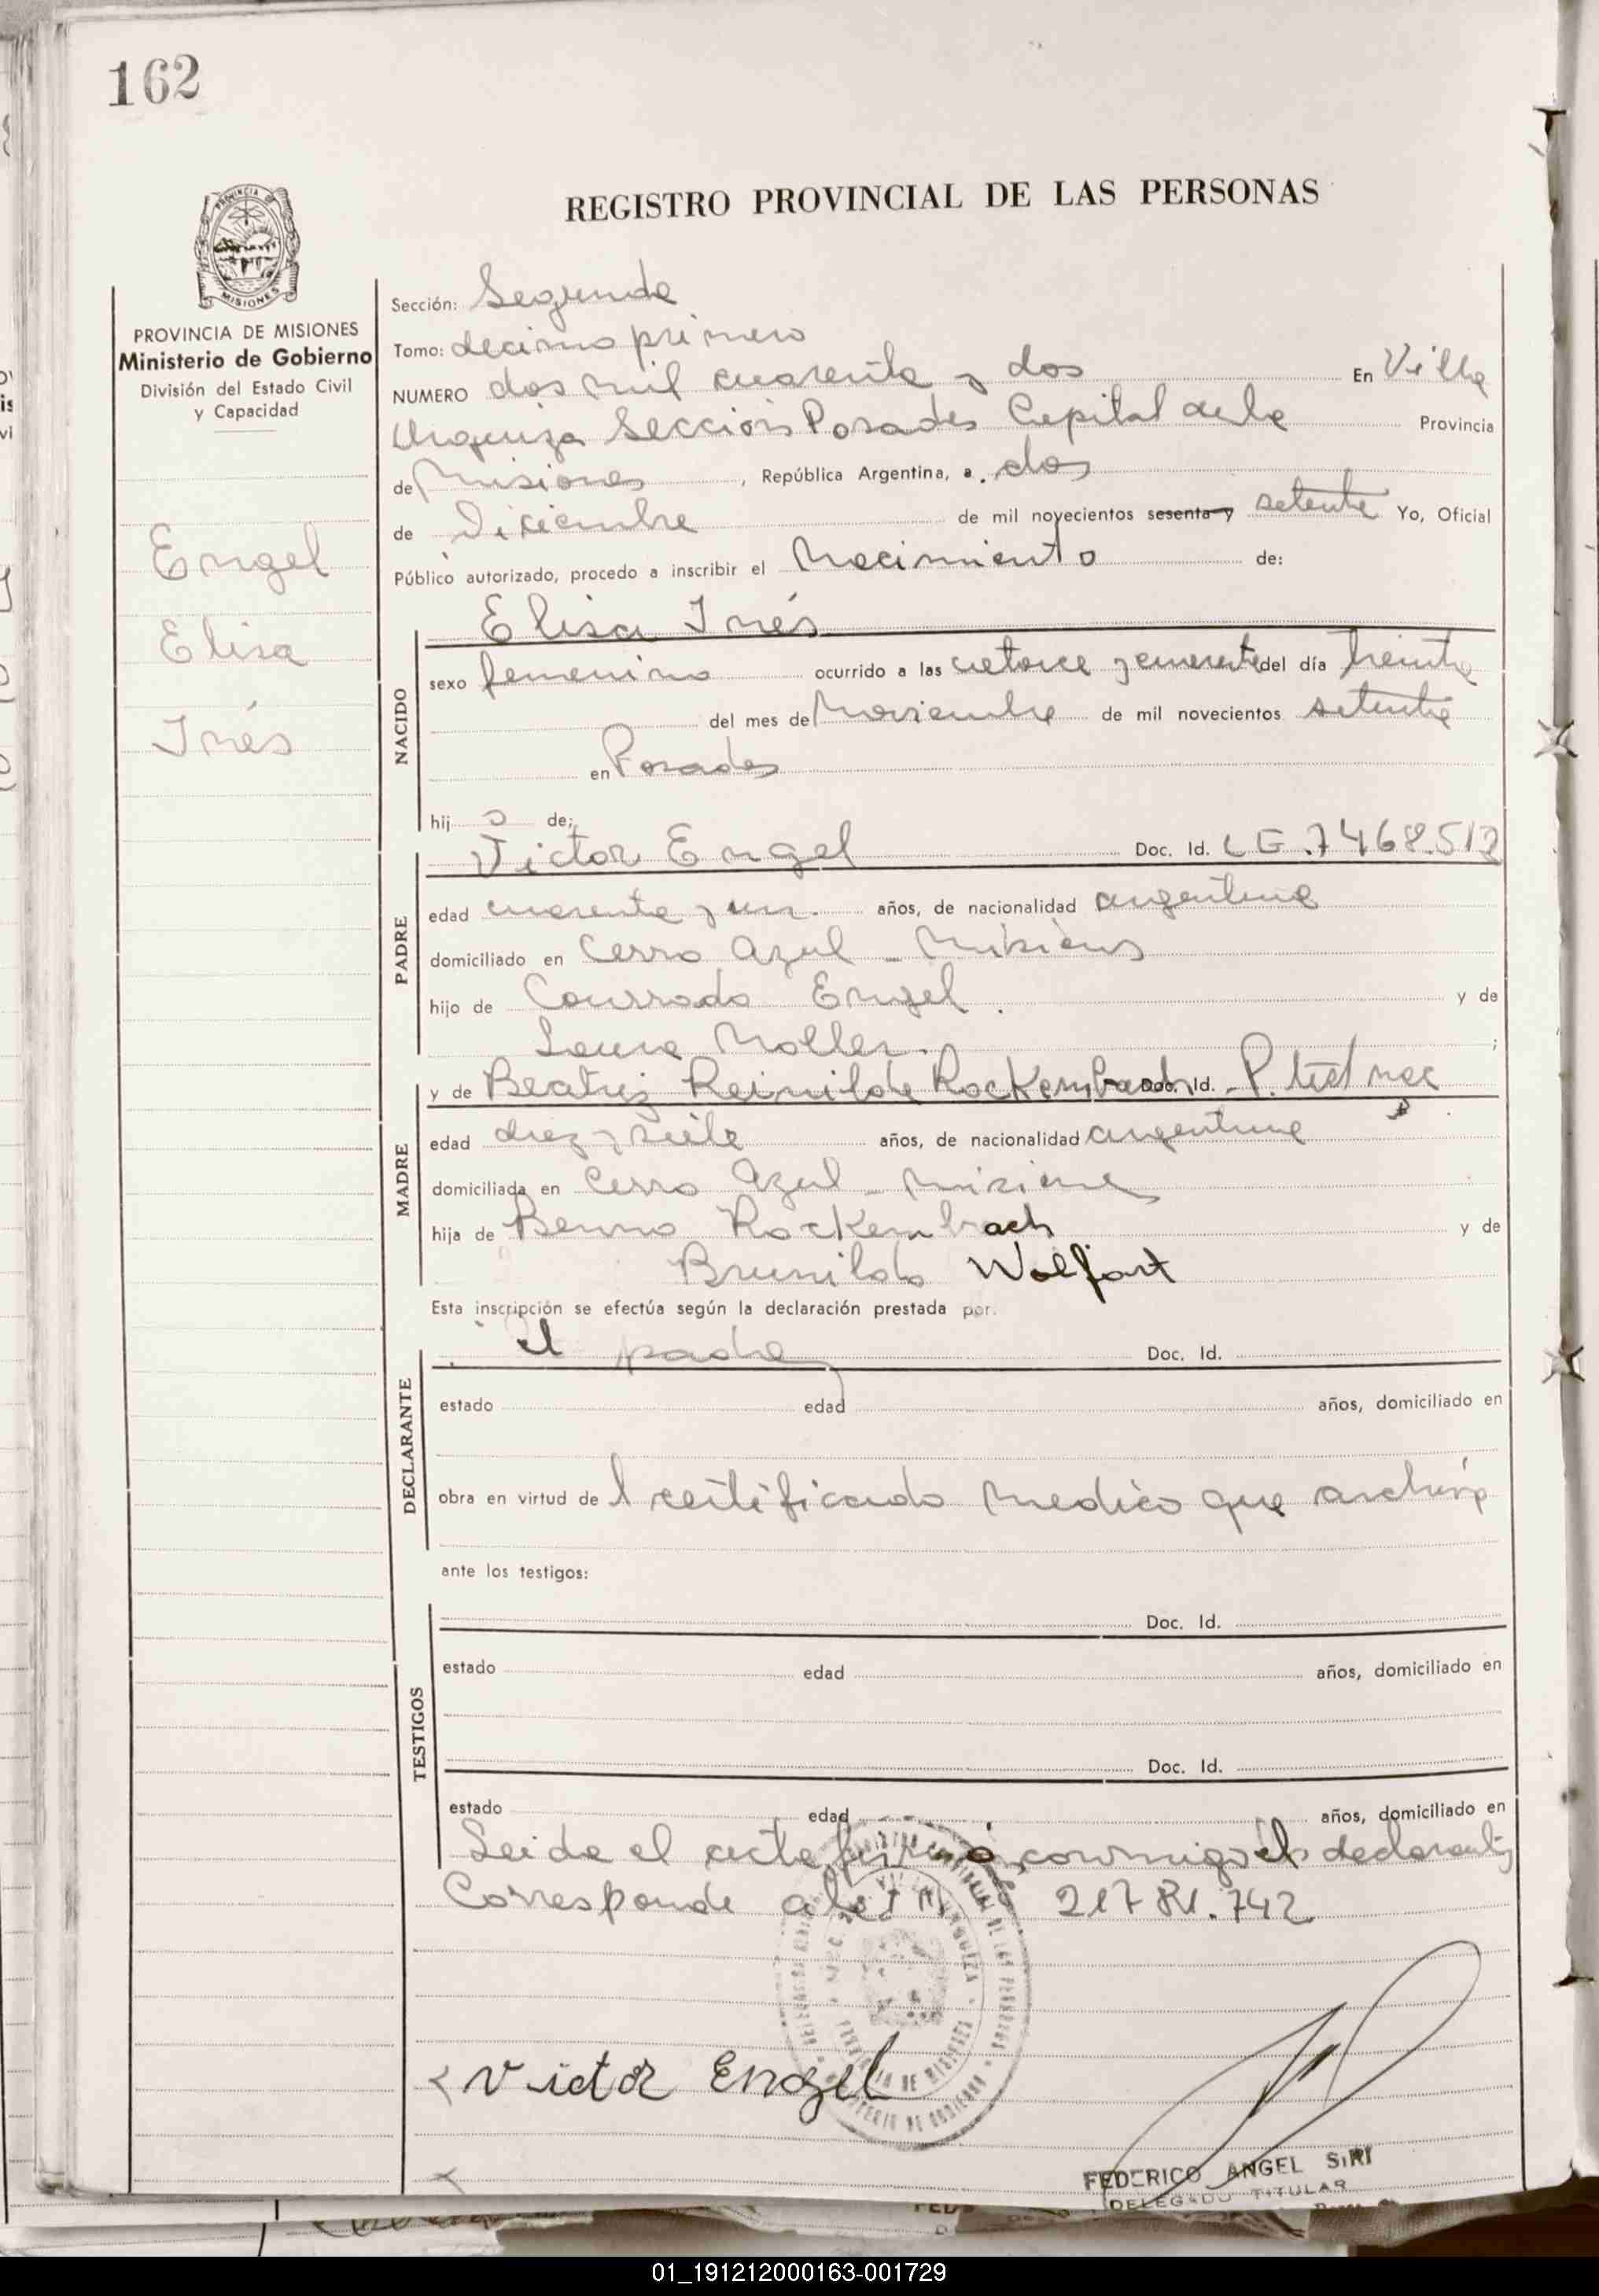 162
REGISTRO PROVINCIAL DE LAS PERSONAS
PROVINCIA DE MISIONES
Ministerio de Gobierno
División del Estado Civil
y Capacidad
Engel
Elisa
Inés
Sección: Segunda
Tomo: decimo primero
NUMERO dos mil cuarenta y dos En Villa
Urquiza Sección Posadas Capital de la Provincia
de Misiones, República Argentina, a dos
de Diciembre de mil novecientos sesenta y setenta Yo, Oficial
Público autorizado, procedo a inscribir el Nacimiento de:
NACIDO
Elisa Inés
sexo femenino ocurrido a las catorce y cuarenta del día treinta
del mes de Noviembre de mil novecientos setenta
en Posadas
hij a de:
PADRE
Victor Engel Doc. Id. L E . 7468.512
edad cuarenta y un años, de nacionalidad argentina
domiciliado en Cerro Azul - Misiones
hijo de Conrrado Engel y de
Laura Moller ;
MADRE
y de Beatriz Reinilda Rockembach Doc. Id.
edad diez y siete años, de nacionalidad argentina
domiciliada en Cerro Azul - Misiones
hija de Benno Rockembach y de
Brunilda Wolfart
Esta inscripción se efectúa según la declaración prestada por:
DECLARANTE
El padre Doc. Id.
estado edad años, domiciliado en
obra en virtud de l certificado medico que archivo
ante los testigos:
TESTIGOS
Doc. Id.
estado edad años, domiciliado en
Doc. Id.
estado edad años, domiciliado en
Leida el acta firmó conmigo el declarante
Corresponde 21781.742
Victor Engel
FEDERICO ANGEL SIRI
DELEGADO TITULAR
01_191212000163-001729